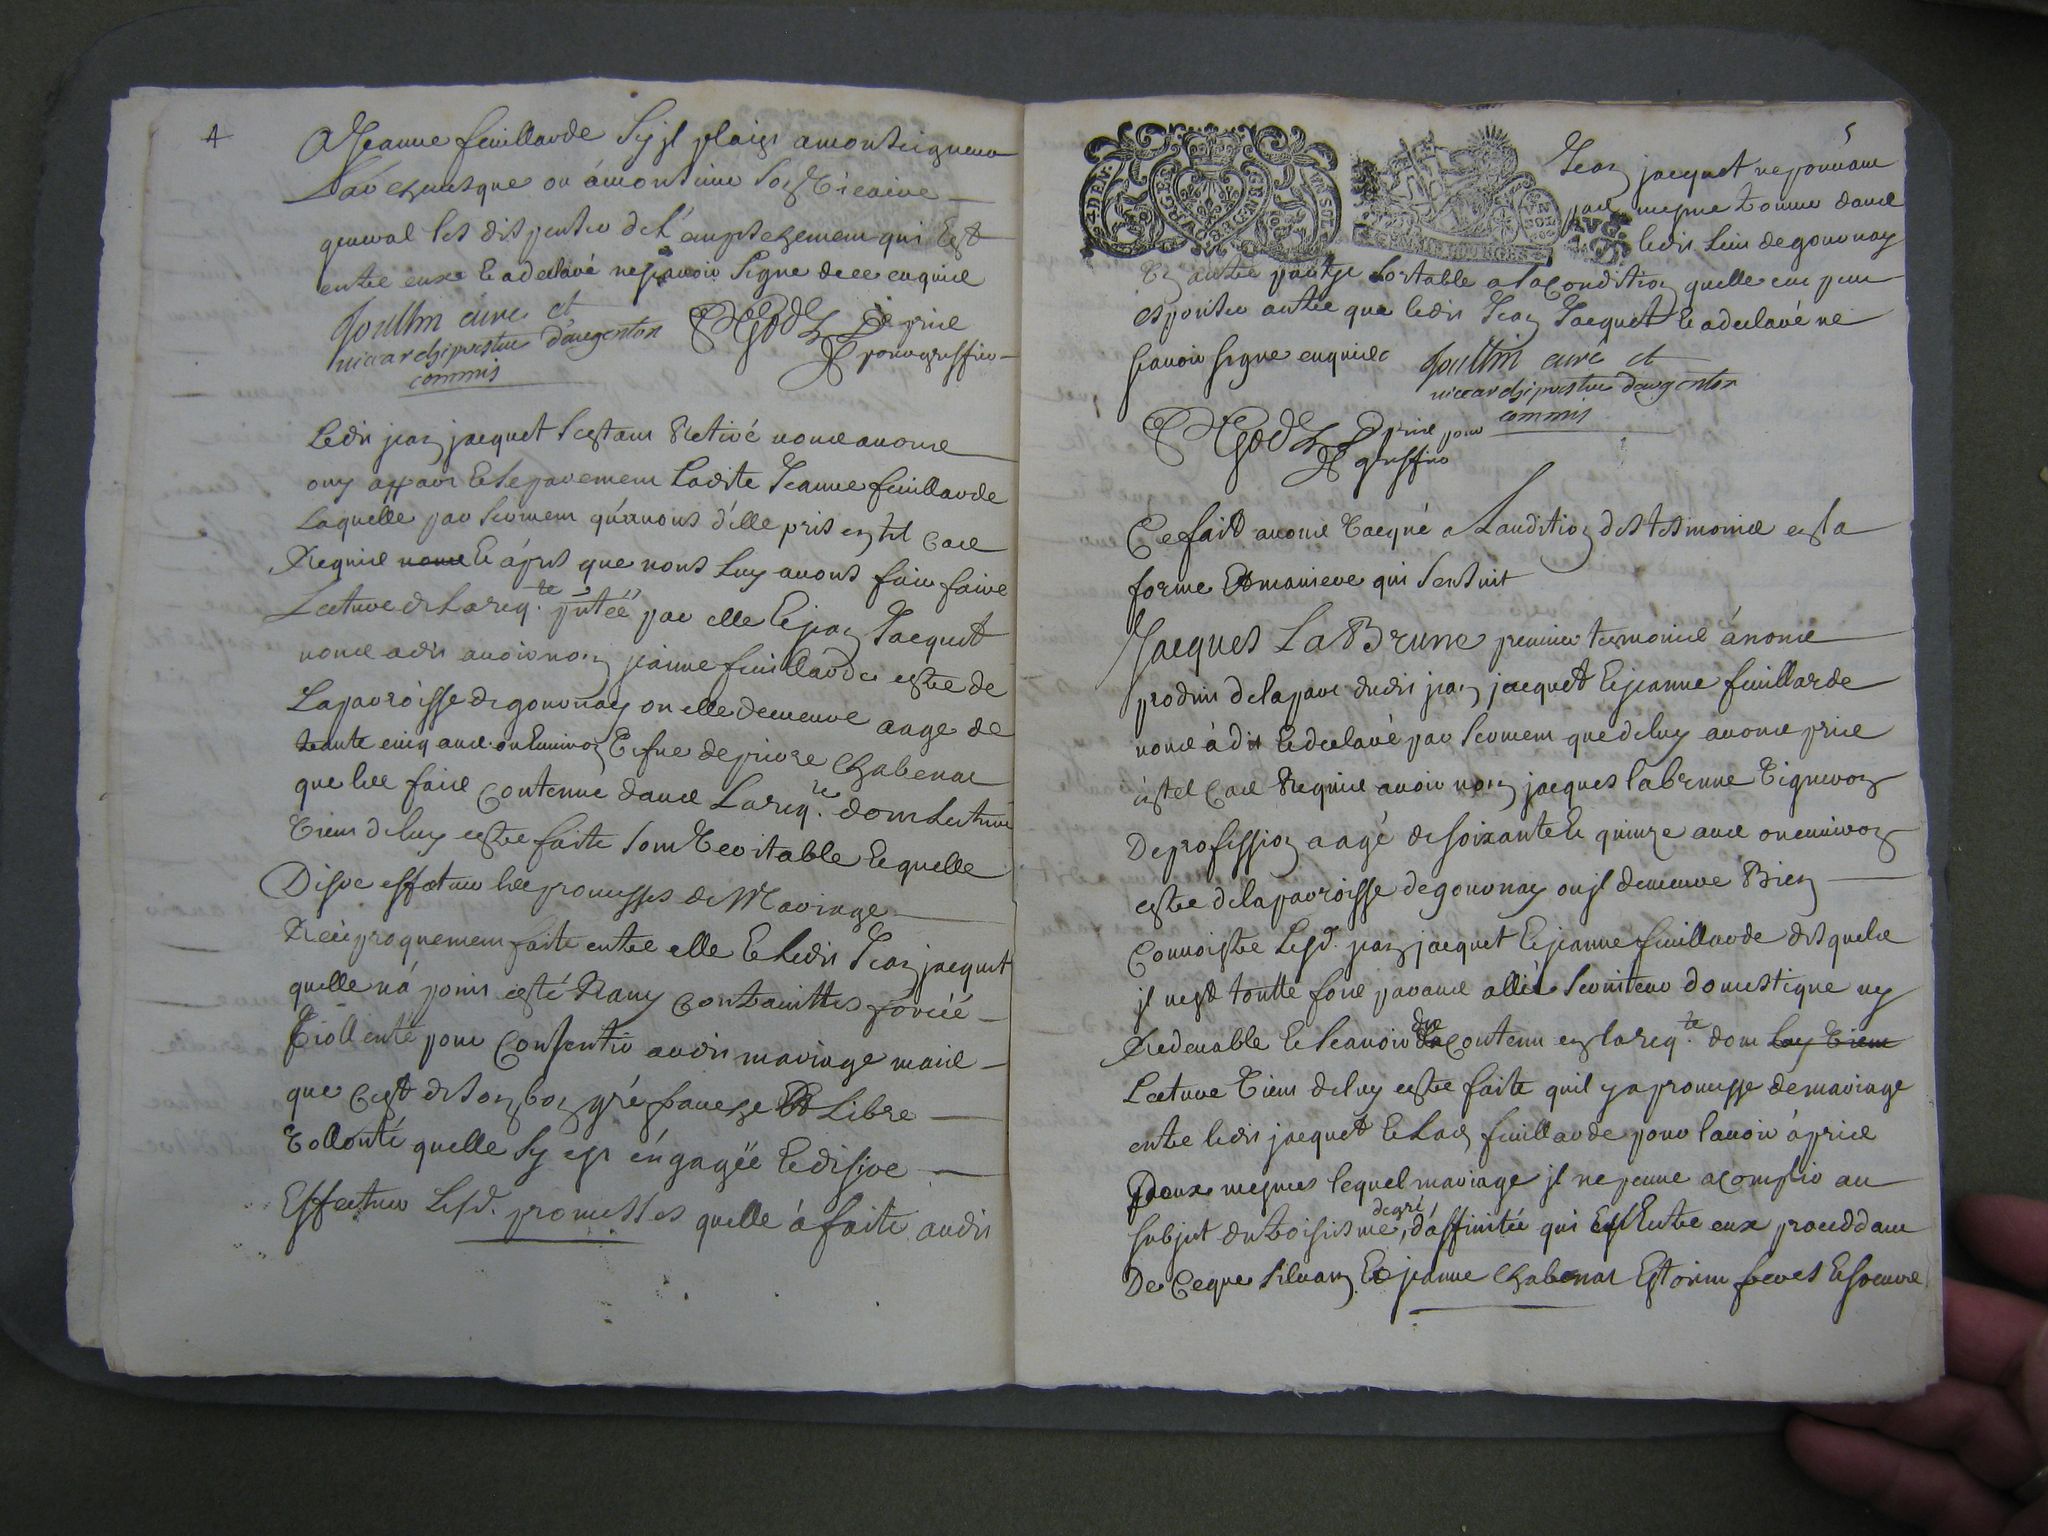 4
A Jeanne feuillarde Sy jl plaist a monseigneur
L'archevesque ou à monsieur Son Vicaire
general les dispenser de l'empeschement qui Est
entre eux Et a declaré ne sçavoir Signe de ce enquise
Joullin curé et
vicearchiprestre d'argenton
commis
pris
pour greffier
Ledit jean jacquet s'estant Retiré nous avons
ouy appart Et separement Ladite Jeanne feuillarde
Laquelle par serment qu'avons d'elle pris en tel cas
Requis Et aprés que nous Luy avons faict faire
Lecture de La req.te p'ntéé par elle Et jean Jacquet
nous a dit avoir nom jeanne feuillarde estre de
La parroisse de gournay ou elle demeure aagé de
trante cinq ans ou Environ Et fue de pierre Chabenat
que les faits Contenue dans La req.te dont Lecture
Vient de luy estre faite sont Veritable Et quelle
Desire effectuer les promesses de Mariage
Reciproquement faite entre elle Et Ledit Jean jacquet
quelle n'á point esté Ravy Contrainttes forcéé
Viollenté pour Consentir audit mariage mais
que C'est de son bon gré franche Et Libre
Vollonté quelle sy est éngagëe Et desire
Effectuer Lesd. promesses quelle à faite audit
5
Jean jacquet ne pouvant
pas mesme trouver dans
ledit Lieu de gournay
Et autre party Sortable a la Condition quelle eut peu
espouser autre que ledit Jean Jacquet Et a declaré ne
sçavoir signe enquise
Joullin curé et
vicearchiprestre d'argenton
commis
pris pour
greffier
Ce fait avons Vacqué a L'audition des tesmoins en la
forme Et maniere qui s'ensuit
Jacques LaBrune premier tesmoins à nous
produit de la part dudit jean jacquet Et jeanne feuillarde
nous à dit Et declaré par Serment que de luy avons pris
en tel Cas Requis avoir nom jacques labrune Vigneron
De profession aagé de soixante Et quinze ans ou environ
estre de la parroisse de gournay ou jl demeure Bien
Connoistre Lesd. jean jacquet Et jeanne feuillarde desquels
jl nest toutte fois parans allié Serviteur domestique ny
Redevable Et sçavoir du contenu en la req.te dont luy Vient
Lecture Vient de luy estre faite quil y a promesse de mariage
entre ledit jacquet Et Lad. feuillarde pour l'avoir apris
Deux mesmes lequel mariage jl ne peuve acomplir au
subjet du troisiesme degré d'affinitée qui Est Entre eux proceddant
De Ceque silvain Et jeanne Chabenat Estoient freres Et soeurs